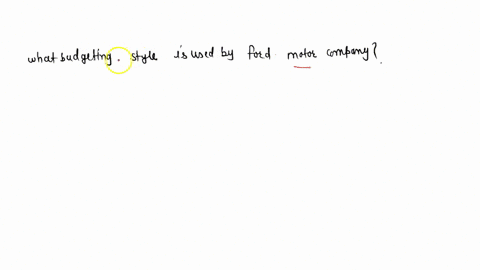 what budgeting. style is used by ford motor company?